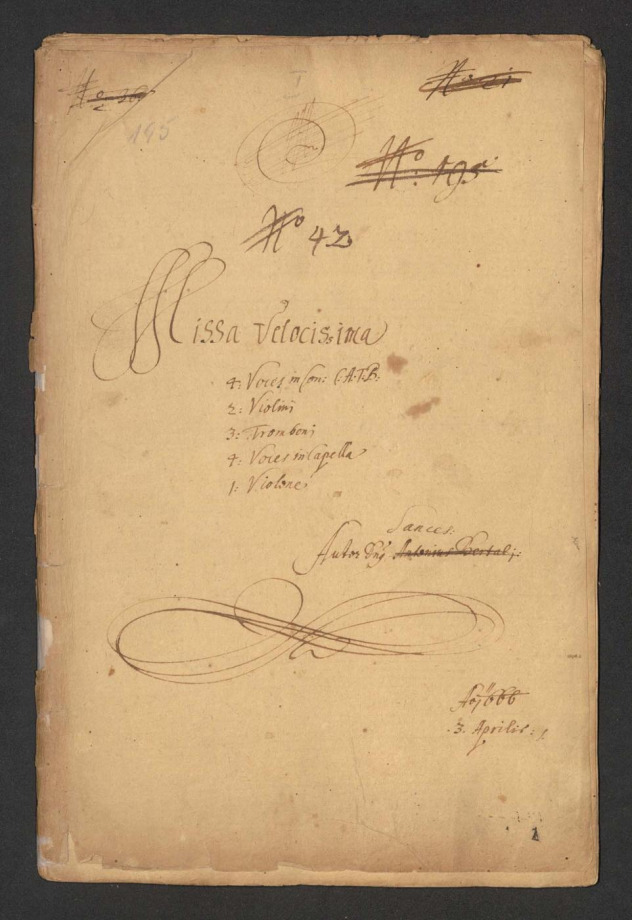 No 21
195
I
No: 195
No 42
Missa Velocissima
4: Voces in Con: C.A.T.B.
2: Violini
3: Tromboni
4: Voces in Capella
1: Violone
Sances:
Autor Dnj Antonius Bertali:
Ao 1666
3. Aprilis:
1